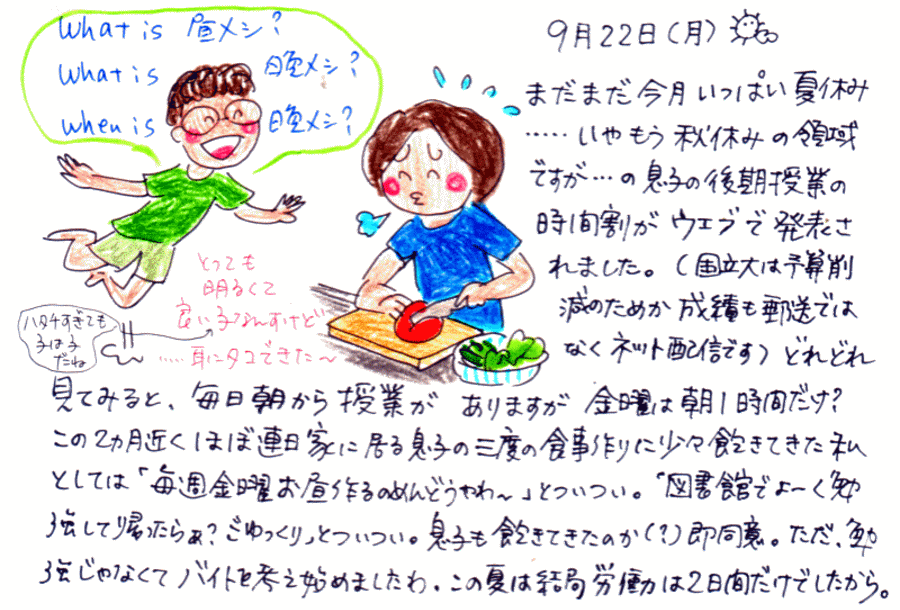 What is 昼メシ?
What is 晩メシ?
When is 晩メシ?
9月22日(月)
まだまだ今月いっぱい夏休み
……いやもう秋休みの領域
ですが…の息子の後期授業の
時間割がウェブで発表さ
れました。(国立大は予算削
減のためか成績も郵送では
なくネット配信です)どれどれ
とっても
明るくて
良い子なんすけど
……耳にタコできた〜
ハタチすぎても
子は子
だね
見てみると、毎日朝から授業がありますが金曜は朝1時間だけ?
この2カ月近くほぼ連日家に居る息子の三度の食事作りに少々飽きてきた私
としては「毎週金曜お昼作るのめんどうやわ〜」とついつい。「図書館でよ〜く勉
強して帰ったらぁ?ごゆっくり」とついつい。息子も飽きてきたのか(?)即同意。ただ、勉
強じゃなくてバイトを考え始めましたわ。この夏は結局労働は2日間だけでしたから。